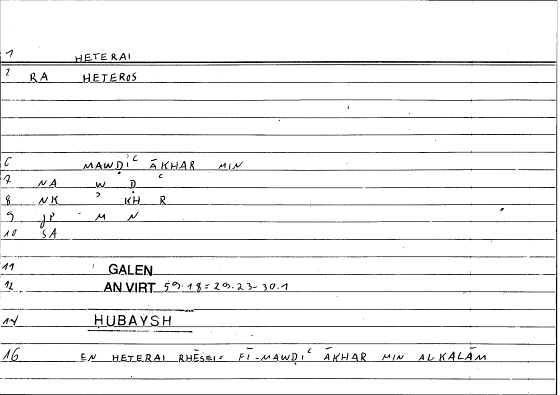 1 HETERAI
2 RA HETEROS
6 MAWḌIʿ ĀKHAR MIN
7 NA W Ḍ ʿ
8 NK ʾ KH R
9 JP M N
10 SA
11 GALEN
12 AN VIRT 59.18 = 29.23-30.1
14 ḤUBAYSH
16 EN HETERAI RHĒSEI = FĪ-MAWḌIʿ ĀKHAR MIN AL KALĀM